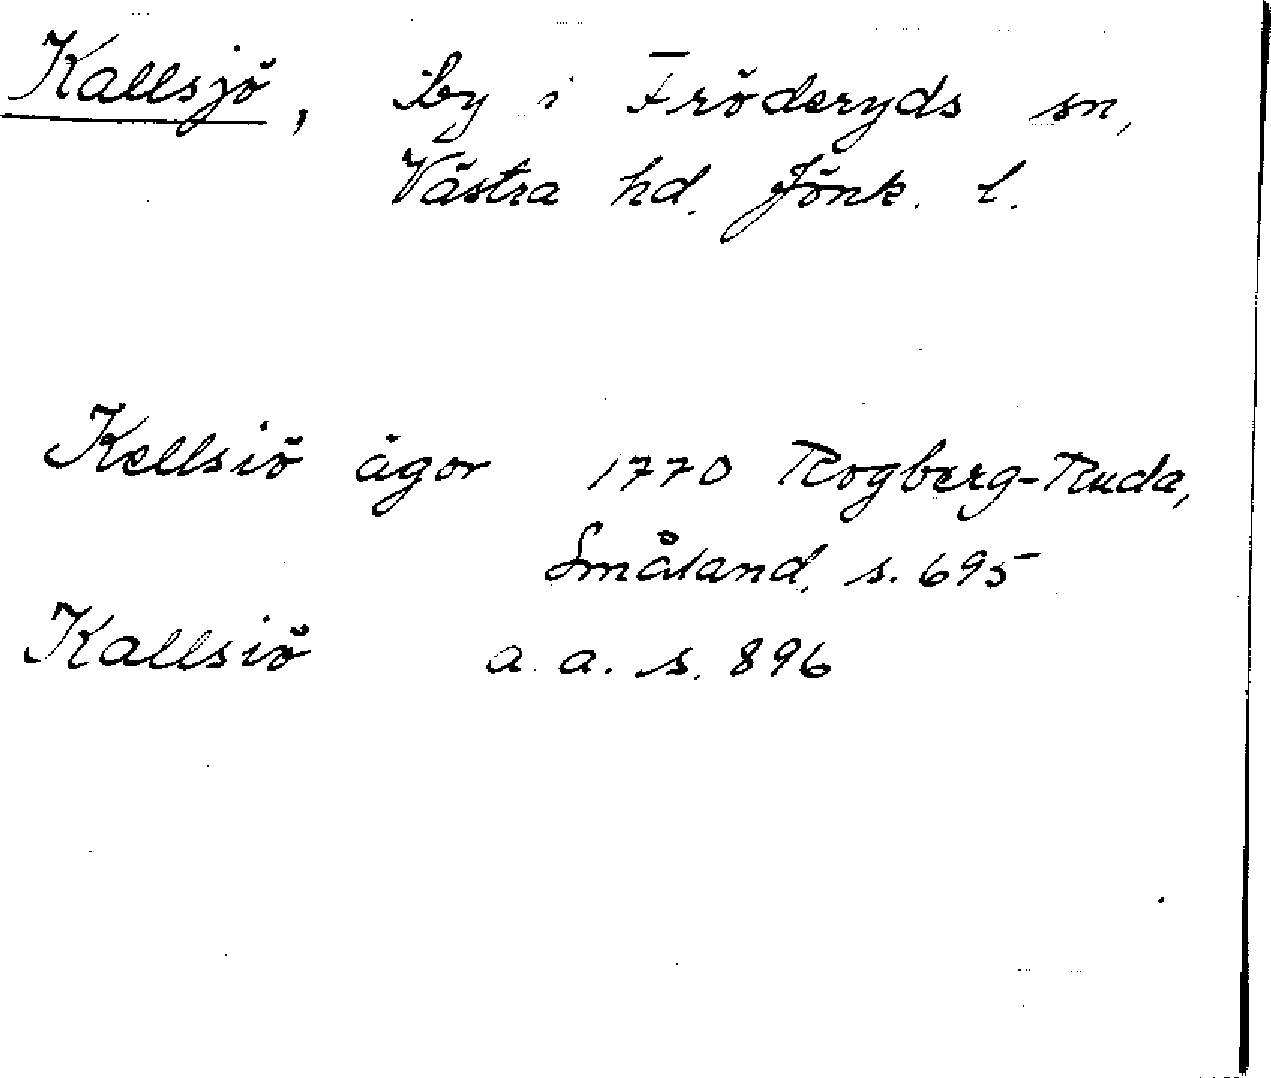 Kallsjö, by i Fröderyds sn,
Västra hd. Jönk. l.
Kellsiö ägor 1770 Rogberg-Ruda,
Småland, s. 695
Kallsiö a. a. s. 896